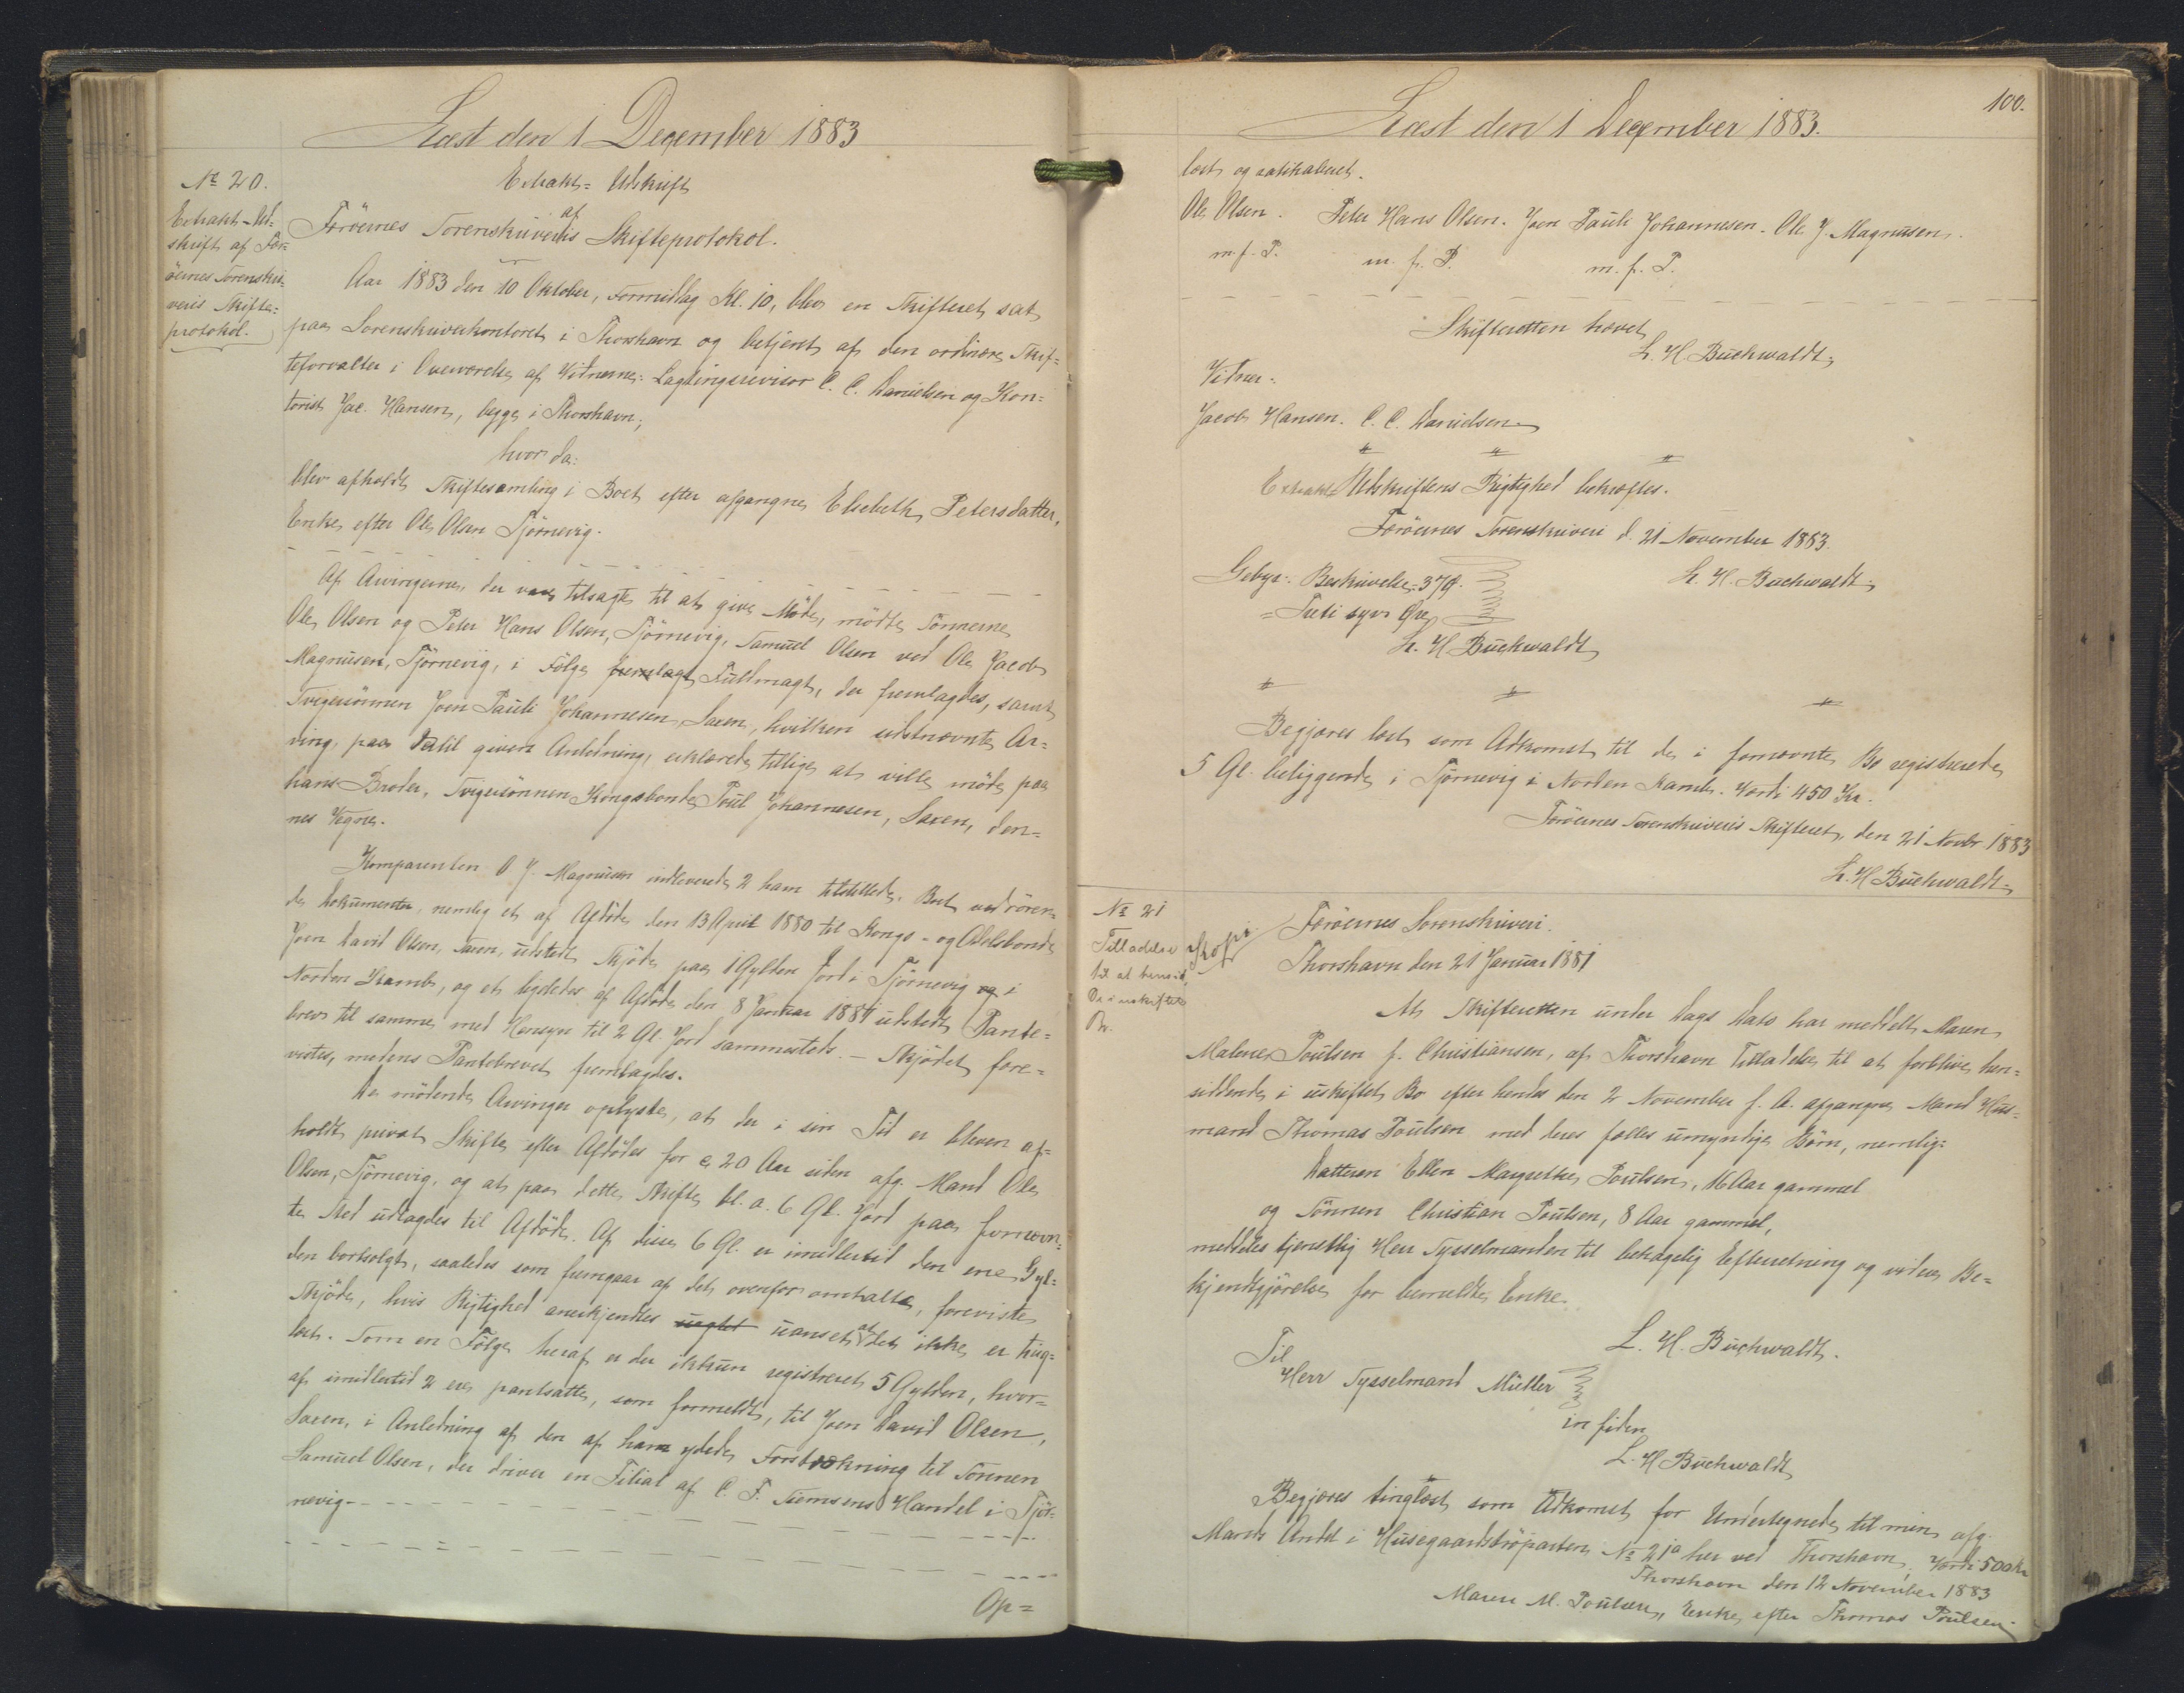 Læst den 1 December 1883
No 20.
Extrakt-Ud-
skrift af Fær-
öernes Sorenskri-
veris Skifte-
protokol.
Extrakt-Udskrift
af
Færöernes Sorenskriveris Skifteprotokol.
Aar 1883 den 10 Oktober, Formiddag Kl. 10, blev en Skifteret sat
paa Sorenskriverkontoret i Thorshavn og betjent af den ordinære Skif-
teforvalter i Overværelse af Vidnerne: Lagtingsrevisor C. C. Danielsen og Kon-
torist Jac. Hansen, begge i Thorshavn;
hvor da:
blev afholdt Skiftesamling i Boet efter afgangne Elsebeth Petersdatter,
Enke efter Ole Olsen Tjörnevig.
Af Arvingerne, der vare tilsagte til at give Möde, mödte Sönnerne
Ole Olsen og Peter Hans Olsen, Tjörnevig, Samuel Olsen ved Ole Jacob
Magnusen, Tjörnevig, i Fölge fremlagt Fuldmagt, der fremlagdes, samt
Svigersönnen Joen Pauli Johannesen, Saxen, hvilken sidstnævnte Ar-
ving, paa dertil given Anledning, erklærede tillige at ville möde paa
hans Broder, Svigersönnen Kongsbonde Poul Johannesen, Saxen, den-
nes Vegne.
Komparenten O J. Magnusen indleverede 2 ham tilstillede, Boet vedrören-
de Dokumenter, nemlig et af Afdöde den 13 April 1880 til Kongs- og Odelsbonde
Joen David Olsen, Saxen, udstedt Skjöde paa 1 Gylden Jord i Tjörnevig og i
Norden Kamb, og et ligeledes af Afdöde den 8 Januar 1881 udstedt Pante-
brev til samme med Hensyn til 2 Gl. Jord sammesteds. - Skjödet fore-
vistes, medens Pantebrevet fremlagdes.
De mödende Arvinger oplyste, at der i sin Tid er bleven af-
holdt privat Skifte efter Afdödes for c. 20 Aar siden afg. Mand Ole
Olsen, Tjörnevig, og at paa dette Skifte bl. a. 6 Gl. Jord paa fornævn-
te Sted udlagdes til Afdöde. Af disse 6 Gl. er imidlertid den ene Gyl-
den bortsolgt, saaledes som fremgaar af det ovenfor omtalte, foreviste
Skjöde, hvis Rigtighed anerkjendtes uanset at det ikke er ting-
læst. Som en Fölge heraf er der ikkun registreret 5 Gylden, hvor-
af imidlertid 2 ere pantsatte, som formeldt, til Joen David Olsen,
Saxen, i Anledning af den af ham ydede Forstrækning til Sönnen
Samuel Olsen, der driver en Filial af C. F. Siemsens Handel i Tjör-
nevig.
Op-
100.
Læst den 1 December 1883.
læst og ratihaberet.
Ole Olsen. Peter Hans Olsen. Joen Pauli Johannesen. Ole J. Magnusen.
m. f. P. m. f. P. m. f. P.
Skifteretten hævet
L. H. Buchwaldt.
Vitner:
Jacob Hansen. C. C. Danielsen
Extrakt Udskriftens Rigtighed bekræftes.
Færöernes Sorenskriveri d. 21 November 1883.
L. H. Buchwaldt.
Gebyr: Beskrivelse: 37 Ø.
= Treti syv Øre
L. H. Buchwaldt
Begjæres læst som Adkomst til de i fornævnte Bo registrerede
5 Gl. beliggende i Tjörnevig i Norden Kamb. Værdi 450 Kr.
Færöernes Sorenskriveris Skifteret, den 21 Novbr 1883
L. H. Buchwaldt.
No 21
Tilladelse
til at hensid.
i uskiftet
Bo.
Kopi
Færöernes Sorenskriveri.
Thorshavn den 21 Januar 1881
At Skifteretten under Dags Dato har meddelt Maren
Malene Poulsen f. Christiansen, af Thorshavn Tilladelse til at forblive hen-
siddende i uskiftet Bo efter hendes den 2 November f. A. afgangne Mand Hus-
mand Thomas Poulsen med deres fælles umyndige Börn, nemlig:
Datteren Ellen Margrethe Poulsen, 16 Aar gammel
og Sönnen Christian Poulsen, 8 Aar gammel,
meddeles tjenstlig Herr Sysselmanden til behagelig Efterretning og videre Be-
kjendtgjörelse for bemeldte Enke.
L. H. Buchwaldt.
Til
Herr Sysselmand Müller
in fidem
L. H. Buchwaldt
Begjæres tinglæst som Adkomst for Undertegnede til min afg.
Mands Andel i Husegaardströparten No 21a her ved Thorshavn, Værdi 500 Kr
Thorshavn den 12 November 1883
Maren M. Poulsen, Enke efter Thomas Poulsen